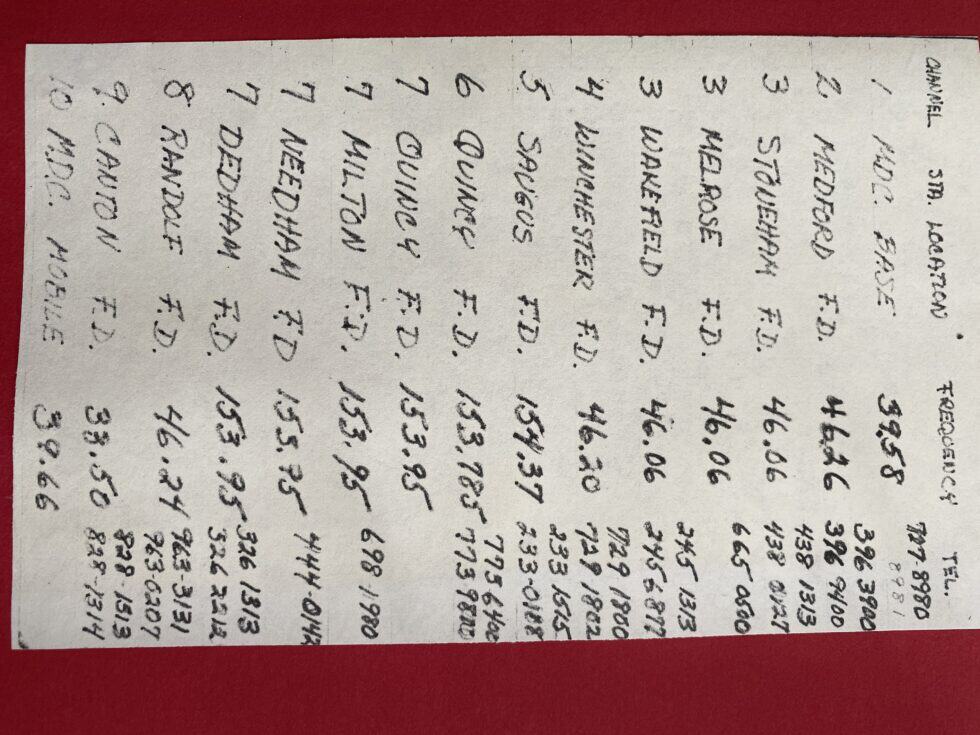 CHANNEL STA. LOCATION FREQUENCY TEL.
727-8980
8981
1 M.D.C. BASE 39.58
396 3900
2 MEDFORD F.D. 46.26 396 9400
438 1313
3 STONEHAM F.D. 46.06 438 0127
3 MELROSE F.D. 46.06 665 0500
245 1313
3 WAKEFIELD F.D. 46.06 245 6877
729 1800
4 WINCHESTER F.D. 46.20 729 1802
233 1555
5 SAUGUS F.D. 154.37 233-0188
773 6400
6 QUINCY F.D. 153.785 773 9800
7 QUINCY F.D. 153.95
7 MILTON F.D. 153.95 698-1980
7 NEEDHAM F.D 153.95 444-0142
326 1313
7 DEDHAM F.D. 153.95 326 2212
963-3131
8 RANDOLF F.D. 46.24 963-0207
828-1313
9 CANTON F.D. 33.50 828-1314
10 M.D.C. MOBILE 39.66